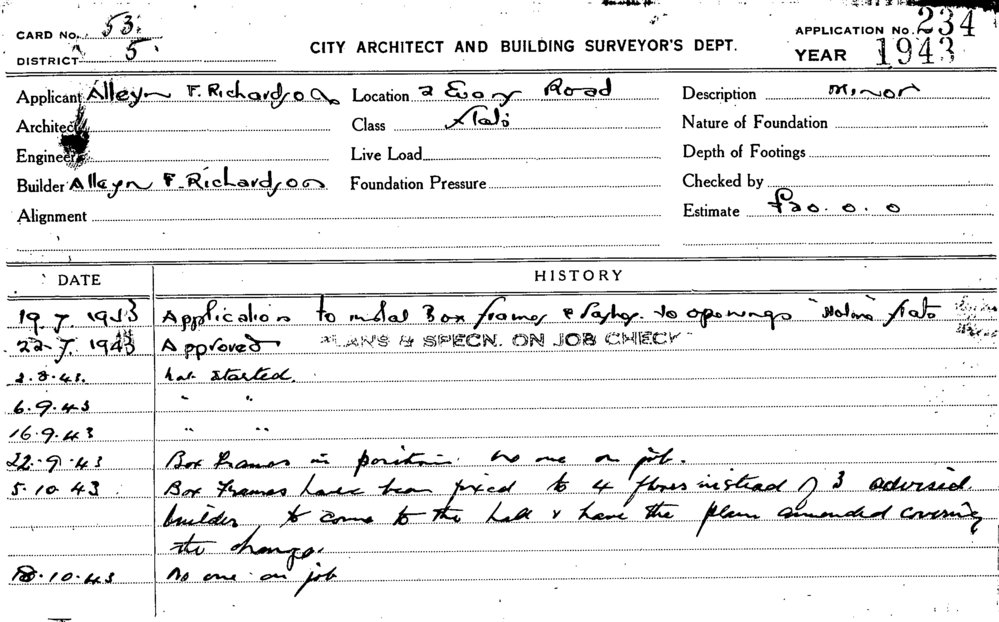 CARD No. 53.
DISTRICT 5.
CITY ARCHITECT AND BUILDING SURVEYOR'S DEPT.
APPLICATION No. 234
YEAR 1943
Applicant Alleyn F. Richardson Location 2 Road Description Minor
Architect Class flats Nature of Foundation
Engineer Live Load Depth of Footings
Builder Alleyn F. Richardson Foundation Pressure Checked by
Alignment Estimate £20. 0. 0
DATE HISTORY
19 7. 1943 Application to Box frames & to openings flats
22. 7. 1943 Approved PLANS & SPECN. ON JOB CHECK
2. 8. 43. not started.
6. 9. 43 " "
16. 9. 43 " "
22. 9. 43 Box frames in position. no one on job.
5. 10. 43 Box frames have been fixed to 4 floors instead of 3 advised
builder to come to the hall & have the plan amended covering
the change.
18. 10. 43 No one on job